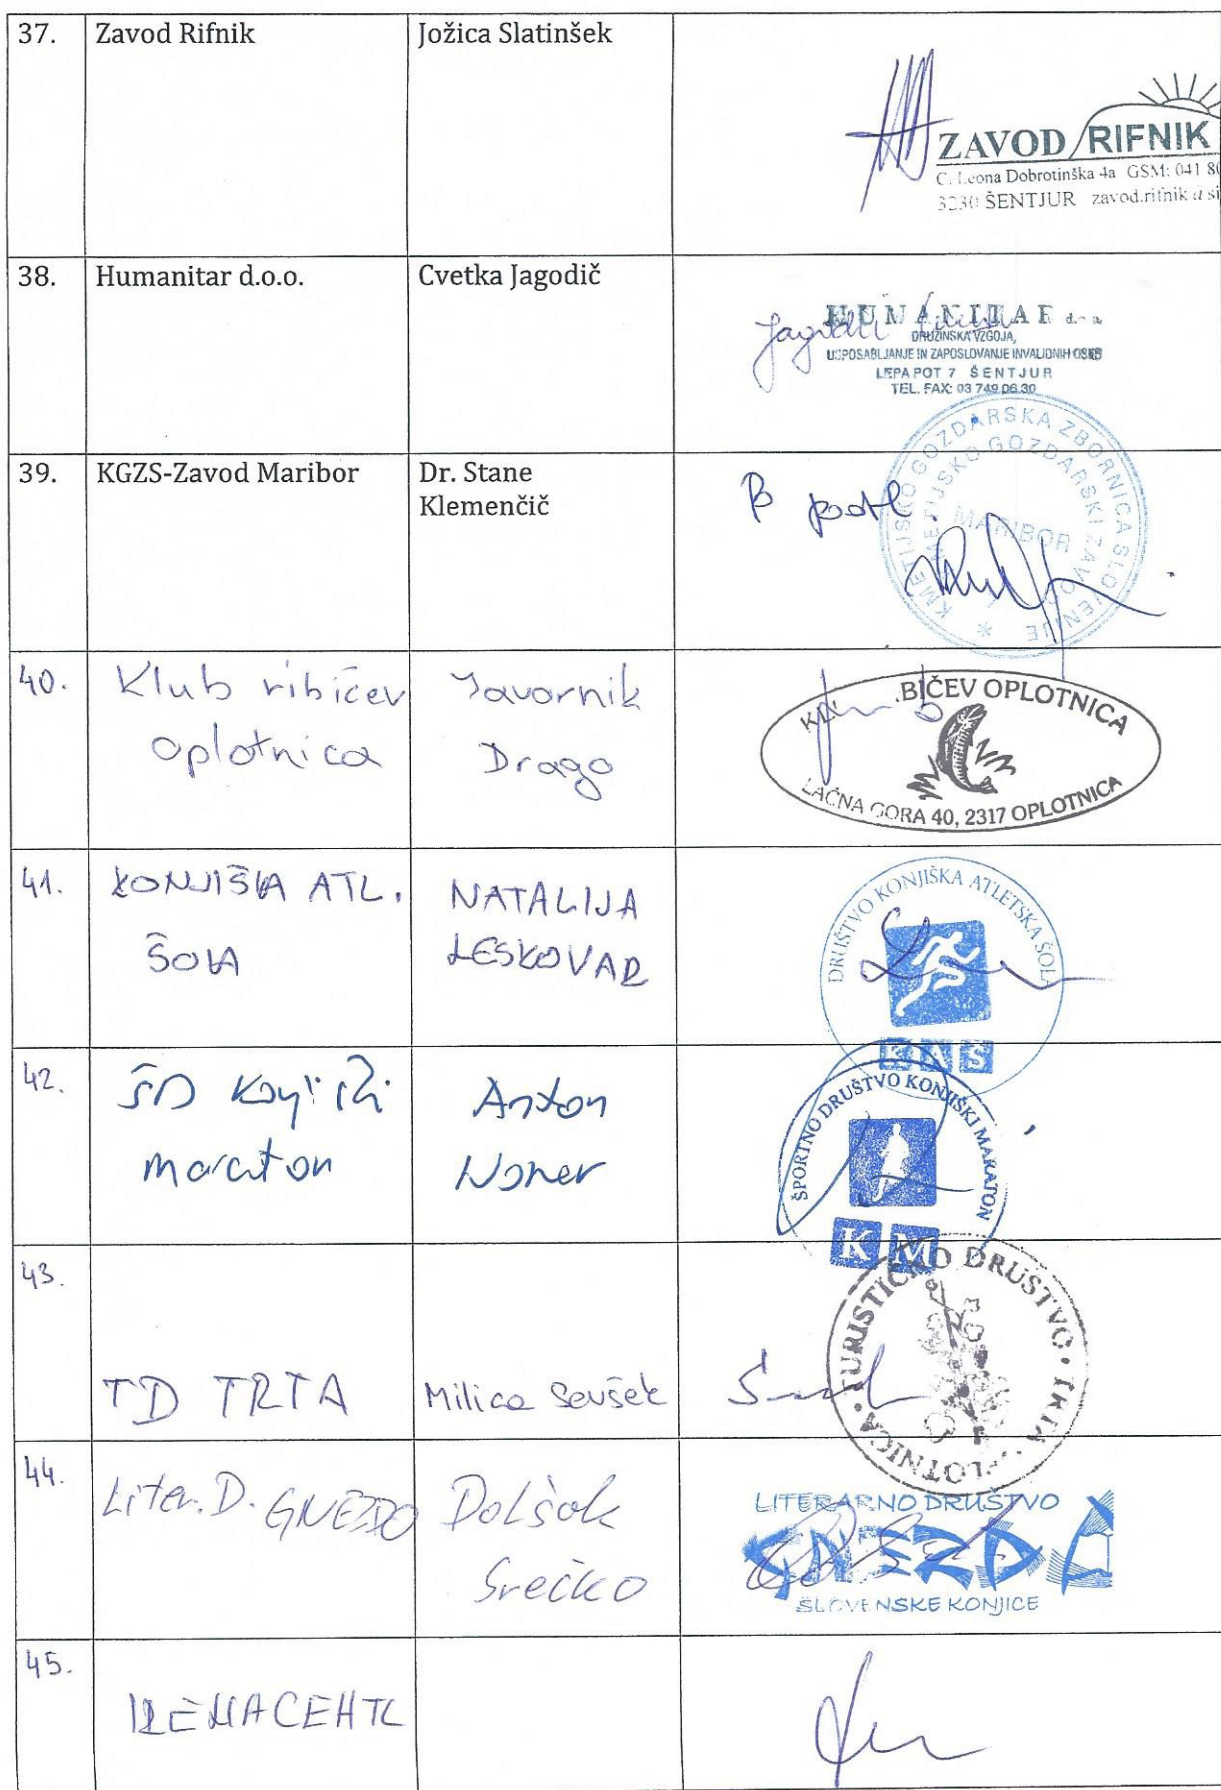 37.
Zavod Rifnik
Jožica Slatinšek
ZAVOD RIFNIK
C. Leona Dobrotinška 4a GSM: 041 80
3230 ŠENTJUR zavod.rifnik
38.
Humanitar d.o.o.
Cvetka Jagodič
HUMANITAR
DRUŽINSKA VZGOJA,
USPOSABLJANJE IN ZAPOSLOVANJE INVALIDNIH OSEB
LEPA POT 7 ŠENTJUR
TEL. FAX: 03 749 06 30
39.
KGZS-Zavod Maribor
Dr. Stane
Klemenčič
KMETIJSKO GOZDARSKA ZBORNICA SLOVENIJE
KMETIJSKO GOZDARSKI ZAVOD
MARIBOR
40.
Klub ribičev
Oplotnica
Javornik
Drago
BIČEV OPLOTNICA
LAČNA GORA 40, 2317 OPLOTNICA
41.
KONJIŠKA ATL.
ŠOLA
NATALIJA
LESKOVAR
DRUŠTVO KONJIŠKA ATLETSKA ŠOLA
KAŠ
42.
ŠD Konjiški
maraton
Anton
ŠPORTNO DRUŠTVO KONJIŠKI MARATON
KM
43.
TD TRTA
Milica Sevšek
TURISTIČKO DRUŠTVO • TRTA OPLOTNICA •
44.
Liter. D. GNEZDO
Dolšak
Srečko
LITERARNO DRUŠTVO
GNEZDA
SLOVENSKE KONJICE
45.